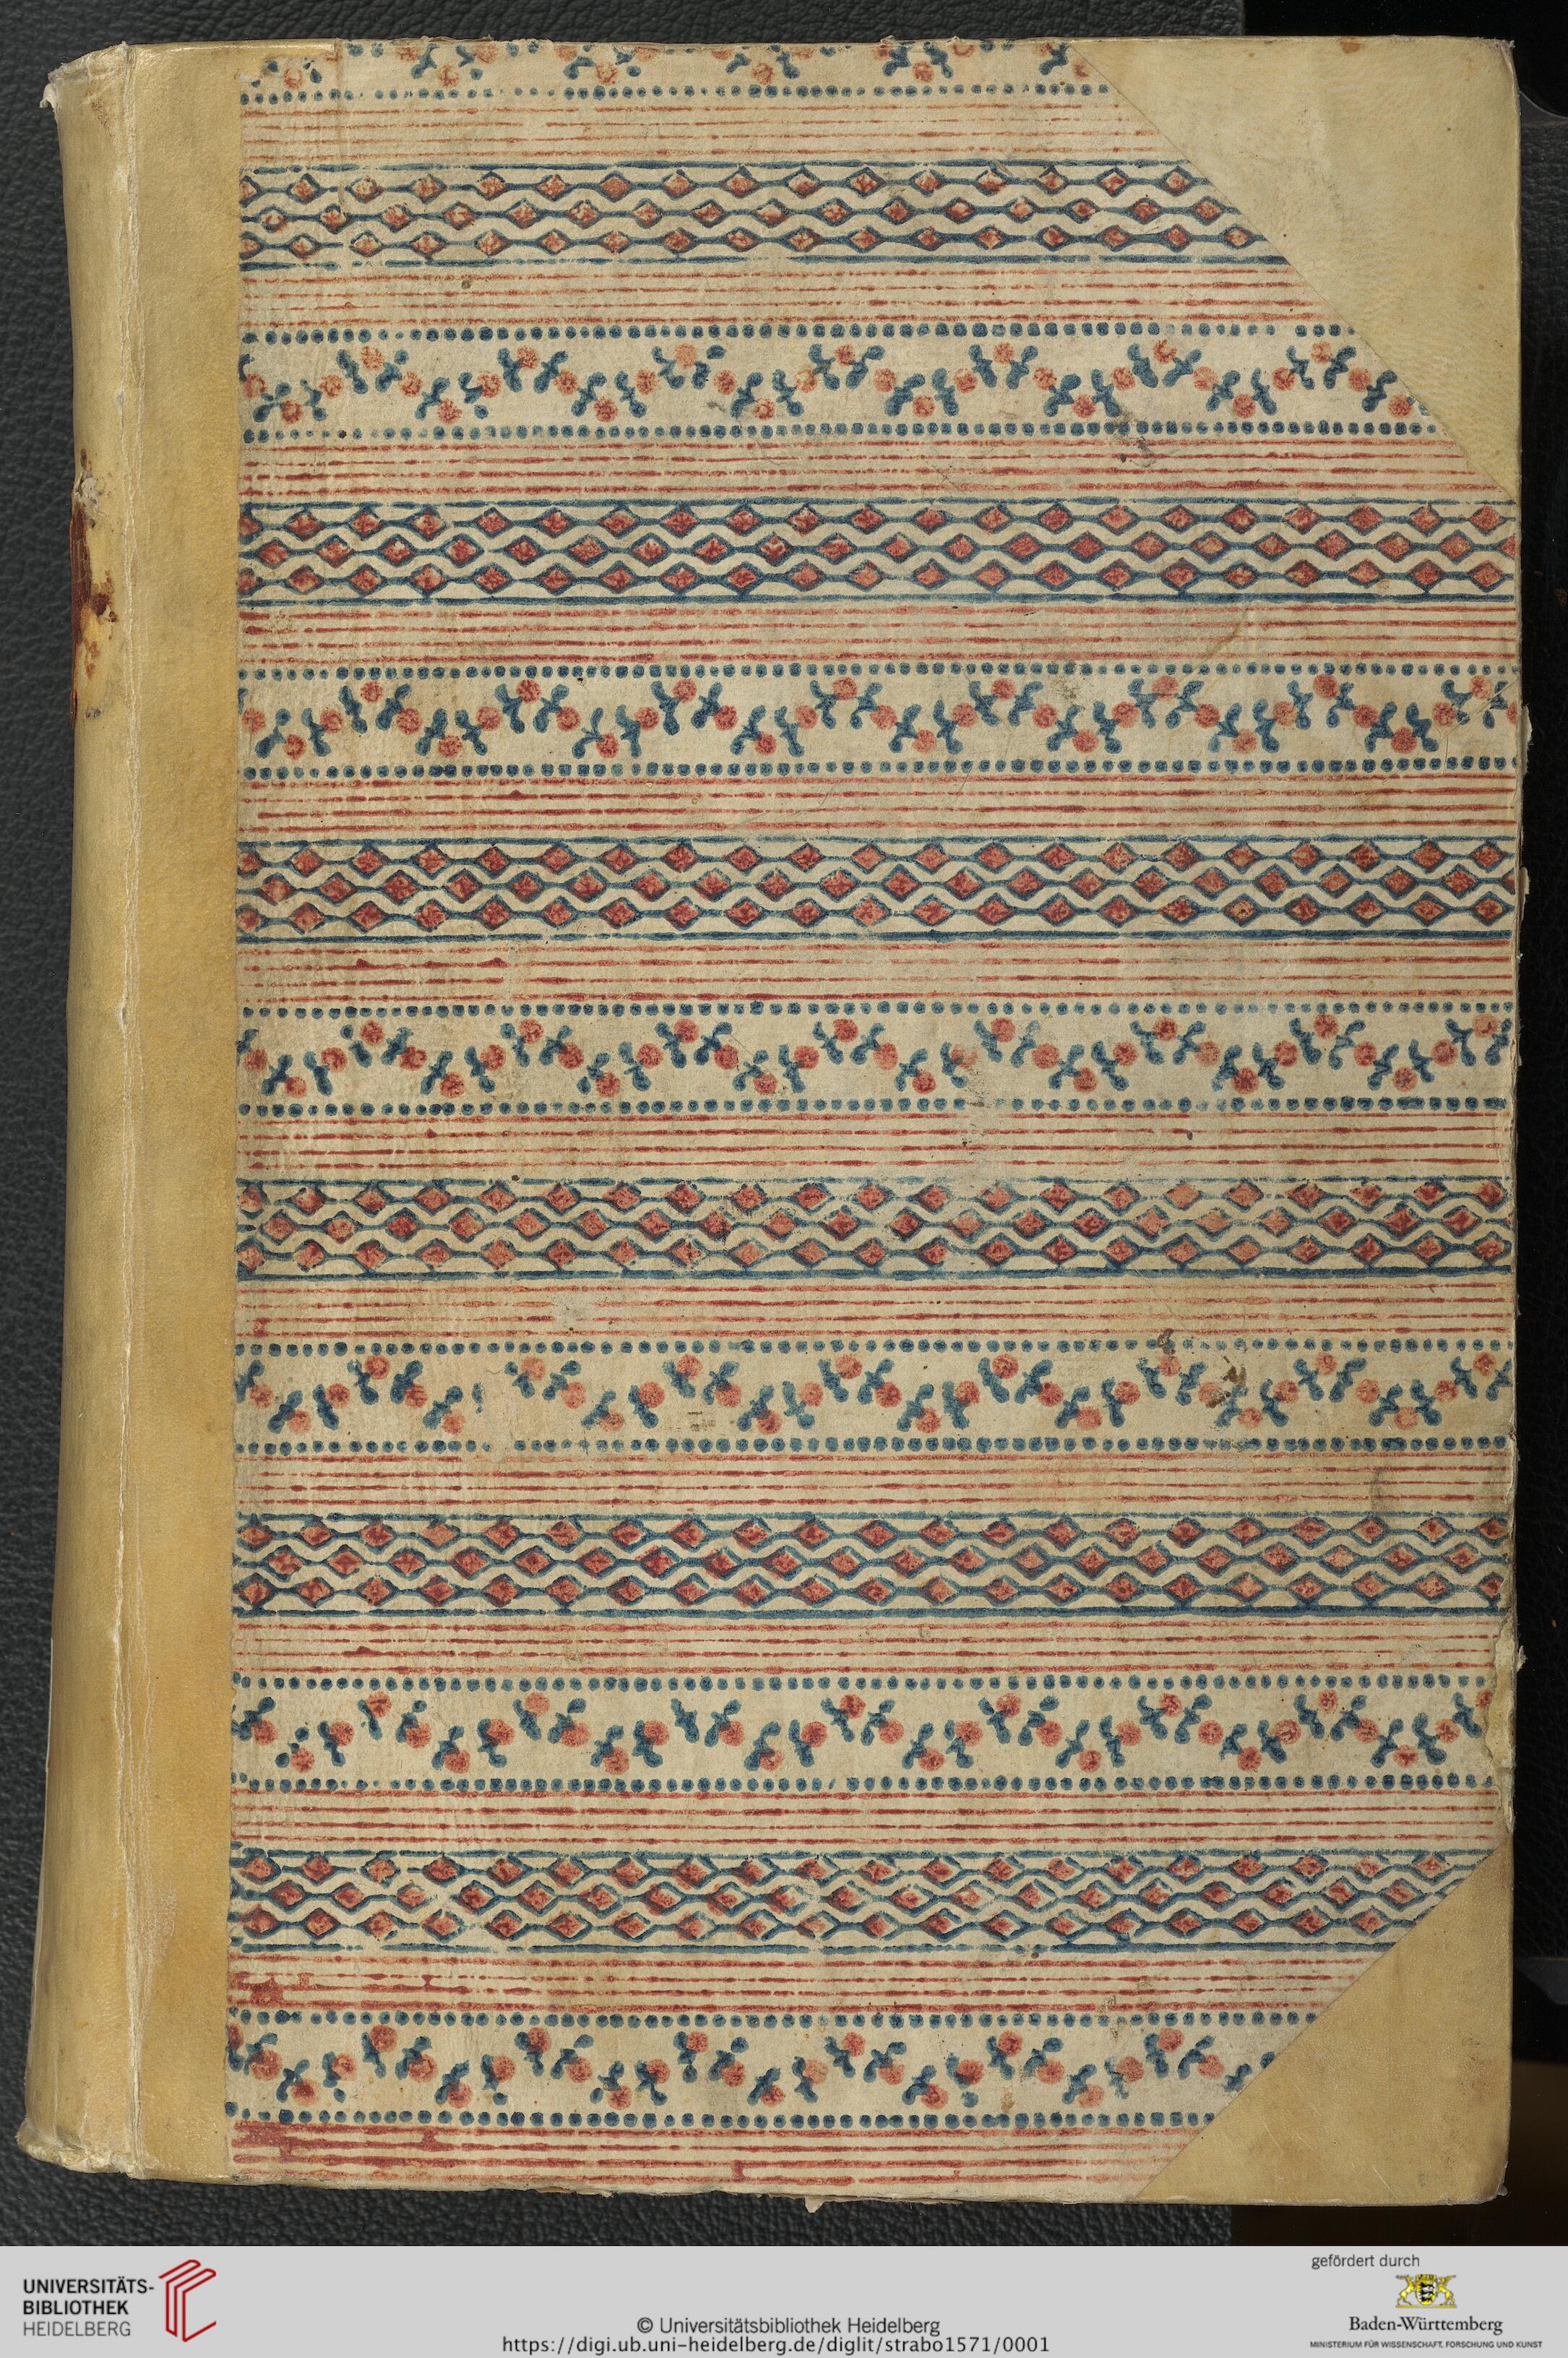 UNIVERSITÄTS-
BIBLIOTHEK
HEIDELBERG
© Universitätsbibliothek Heidelberg
https://digi.ub.uni-heidelberg.de/diglit/strabo1571/0001
gefördert durch
Baden-Württemberg
MINISTERIUM FÜR WISSENSCHAFT, FORSCHUNG UND KUNST